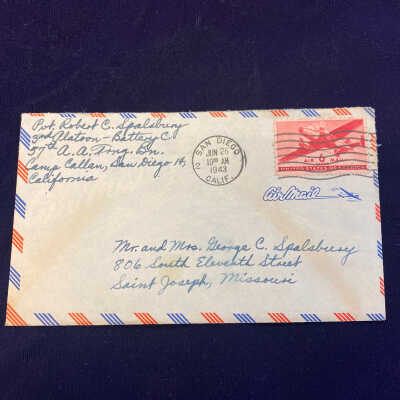 Pvt. Robert C. Spalsbury
3rd Platoon - Battery C
57th A. A. Trng. Bn.
Camp Callan, San Diego 14,
California
SAN DIEGO
2
JUN 26
10 30 AM
1943
CALIF.
6¢
AIR MAIL
UNITED STATES OF AMERICA
Air Mail
Mr. and Mrs. George C. Spalsbury
806 South Eleventh Street
Saint Joseph, Missouri